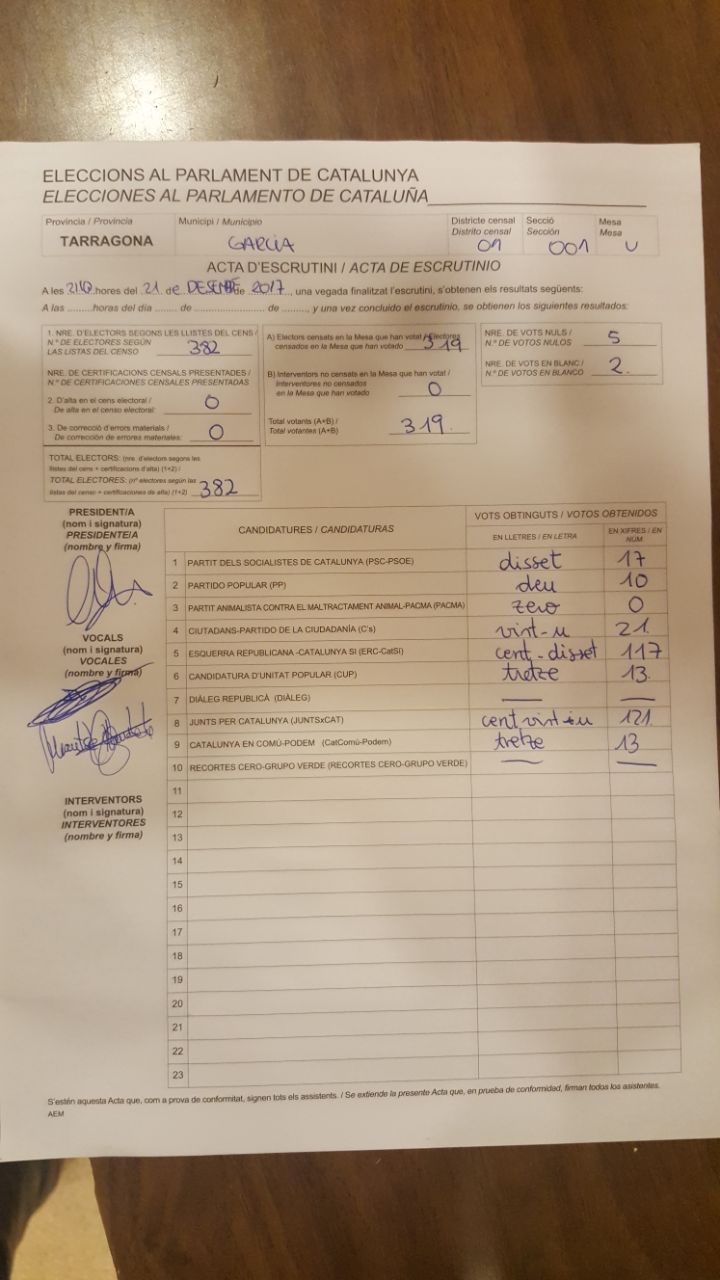 ELECCIONS AL PARLAMENT DE CATALUNYA
ELECCIONES AL PARLAMENTO DE CATALUÑA
Província / Provincia
TARRAGONA
Municipi / Municipio
GARCIA
Districte censal
Distrito censal
01
Secció
Sección
001
Mesa
Mesa
U
ACTA D'ESCRUTINI / ACTA DE ESCRUTINIO
A les hores del 21 de DESEMBRE de 2017, una vegada finalitzat l'escrutini, s'obtenen els resultats següents:
A las ........horas del día ........ de ........................ de ........, y una vez concluido el escrutinio, se obtienen los siguientes resultados:
1. NRE. D'ELECTORS SEGONS LES LLISTES DEL CENS /
N.º DE ELECTORES SEGÚN
LAS LISTAS DEL CENSO 382
NRE. DE CERTIFICACIONS CENSALS PRESENTADES /
N.º DE CERTIFICACIONES CENSALES PRESENTADAS
2. D'alta en el cens electoral /
De alta en el censo electoral: 0
3. De correcció d'errors materials /
De corrección de errores materiales: 0
TOTAL ELECTORS: (nre. d'electors segons les
llistes del cens + certificacions d'alta) (1+2) /
TOTAL ELECTORES: (nº electores según las
listas del censo + certificaciones de alta) (1+2) 382
A) Electors censats en la Mesa que han votat / Electores
censados en la Mesa que han votado 319
B) Interventors no censats en la Mesa que han votat /
Interventores no censados
en la Mesa que han votado 0
Total votants (A+B) /
Total votantes (A+B) 319.
NRE. DE VOTS NULS /
N.º DE VOTOS NULOS 5
NRE. DE VOTS EN BLANC /
N.º DE VOTOS EN BLANCO 2.
PRESIDENT/A
(nom i signatura)
PRESIDENTE/A
(nombre y firma)
VOCALS
(nom i signatura)
VOCALES
(nombre y firma)
INTERVENTORS
(nom i signatura)
INTERVENTORES
(nombre y firma)
CANDIDATURES / CANDIDATURAS
VOTS OBTINGUTS / VOTOS OBTENIDOS
EN LLETRES / EN LETRA
EN XIFRES / EN NÚM
1 PARTIT DELS SOCIALISTES DE CATALUNYA (PSC-PSOE) disset 17
2 PARTIDO POPULAR (PP) deu 10
3 PARTIT ANIMALISTA CONTRA EL MALTRACTAMENT ANIMAL-PACMA (PACMA) zero 0
4 CIUTADANS-PARTIDO DE LA CIUDADANÍA (C's) vint-u 21.
5 ESQUERRA REPUBLICANA -CATALUNYA SI (ERC-CatSí) cent-disset 117
6 CANDIDATURA D'UNITAT POPULAR (CUP) tretze 13.
7 DIÀLEG REPUBLICÀ (DIÀLEG) —
8 JUNTS PER CATALUNYA (JUNTSxCAT) cent vint-i-u 121.
9 CATALUNYA EN COMÚ-PODEM (CatComú-Podem) tretze 13
10 RECORTES CERO-GRUPO VERDE (RECORTES CERO-GRUPO VERDE) —
11
12
13
14
15
16
17
18
19
20
21
22
23
S'estén aquesta Acta que, com a prova de conformitat, signen tots els assistents. / Se extiende la presente Acta que, en prueba de conformidad, firman todos los asistentes.
AEM